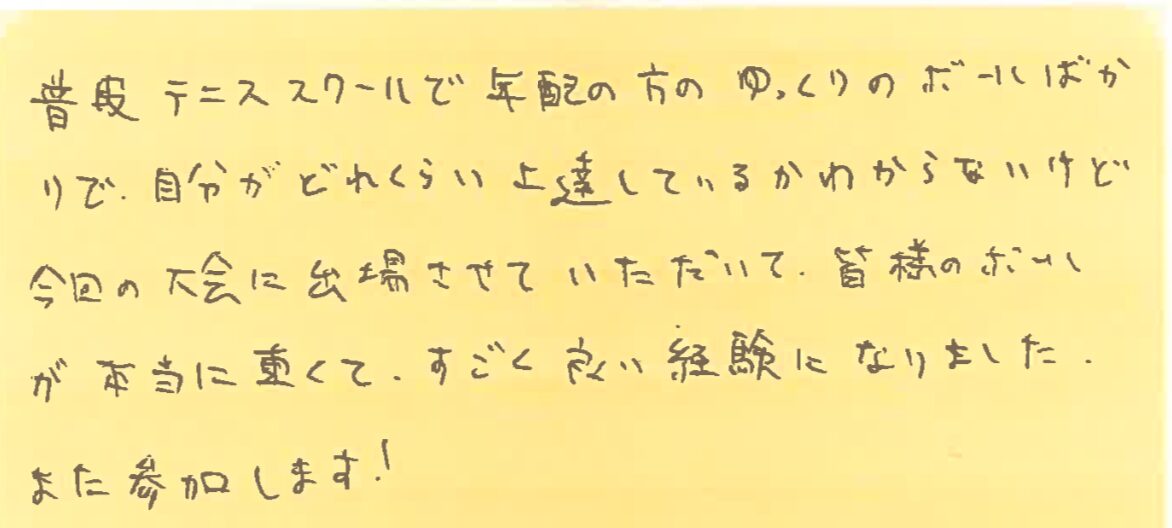 普段テニススクールで年配の方のゆっくりのボールばか
りで、自分がどれくらい上達しているかわからないけど
今回の大会に出場させていただいて、皆様のボール
が本当に重くて、すごく良い経験になりました。
また参加します!